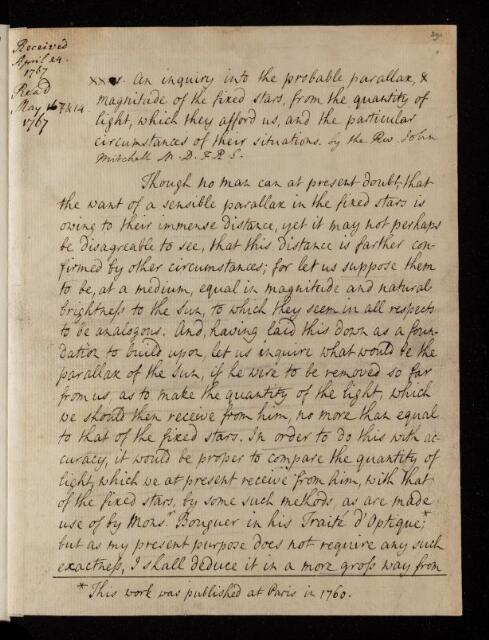 Received
April 24.
1767
Read
May 7 & 14
1767
An inquiry into the probable parallax, &
magnitude of the fixed stars, from the quantity of
light, which they afford us, and the particular
circumstances of their situations. by the Rev. John
Mitchell M. D. F. R. S.
Though no man can at present doubt, that
the want of a sensible parallax in the fixed stars is
owing to their immense distance, yet it may not perhaps
be disagreable to see, that this distance is farther con-
firmed by other circumstances; for let us suppose them
to be, at a medium, equal in magnitude and natural
brightness to the Sun, to which they seem in all respects
to be analogous. And, having laid this down as a foun-
dation to build upon, let us inquire what would be the
parallax of the Sun, if he were to be removed so far
from us, as to make the quantity of the light, which
we should then receive from him, no more than equal
to that of the fixed stars. In order to do this with ac-
curacy, it would be proper to compare the quantity of
light, which we at present receive from him, with that
of the fixed stars, by some such methods, as are made
use of by Mons.r Bouguer in his Traité d'Optique;*
but as my present purpose does not require any such
exactness, I shall deduce it in a more gross way from
* This work was published at Paris in 1760.